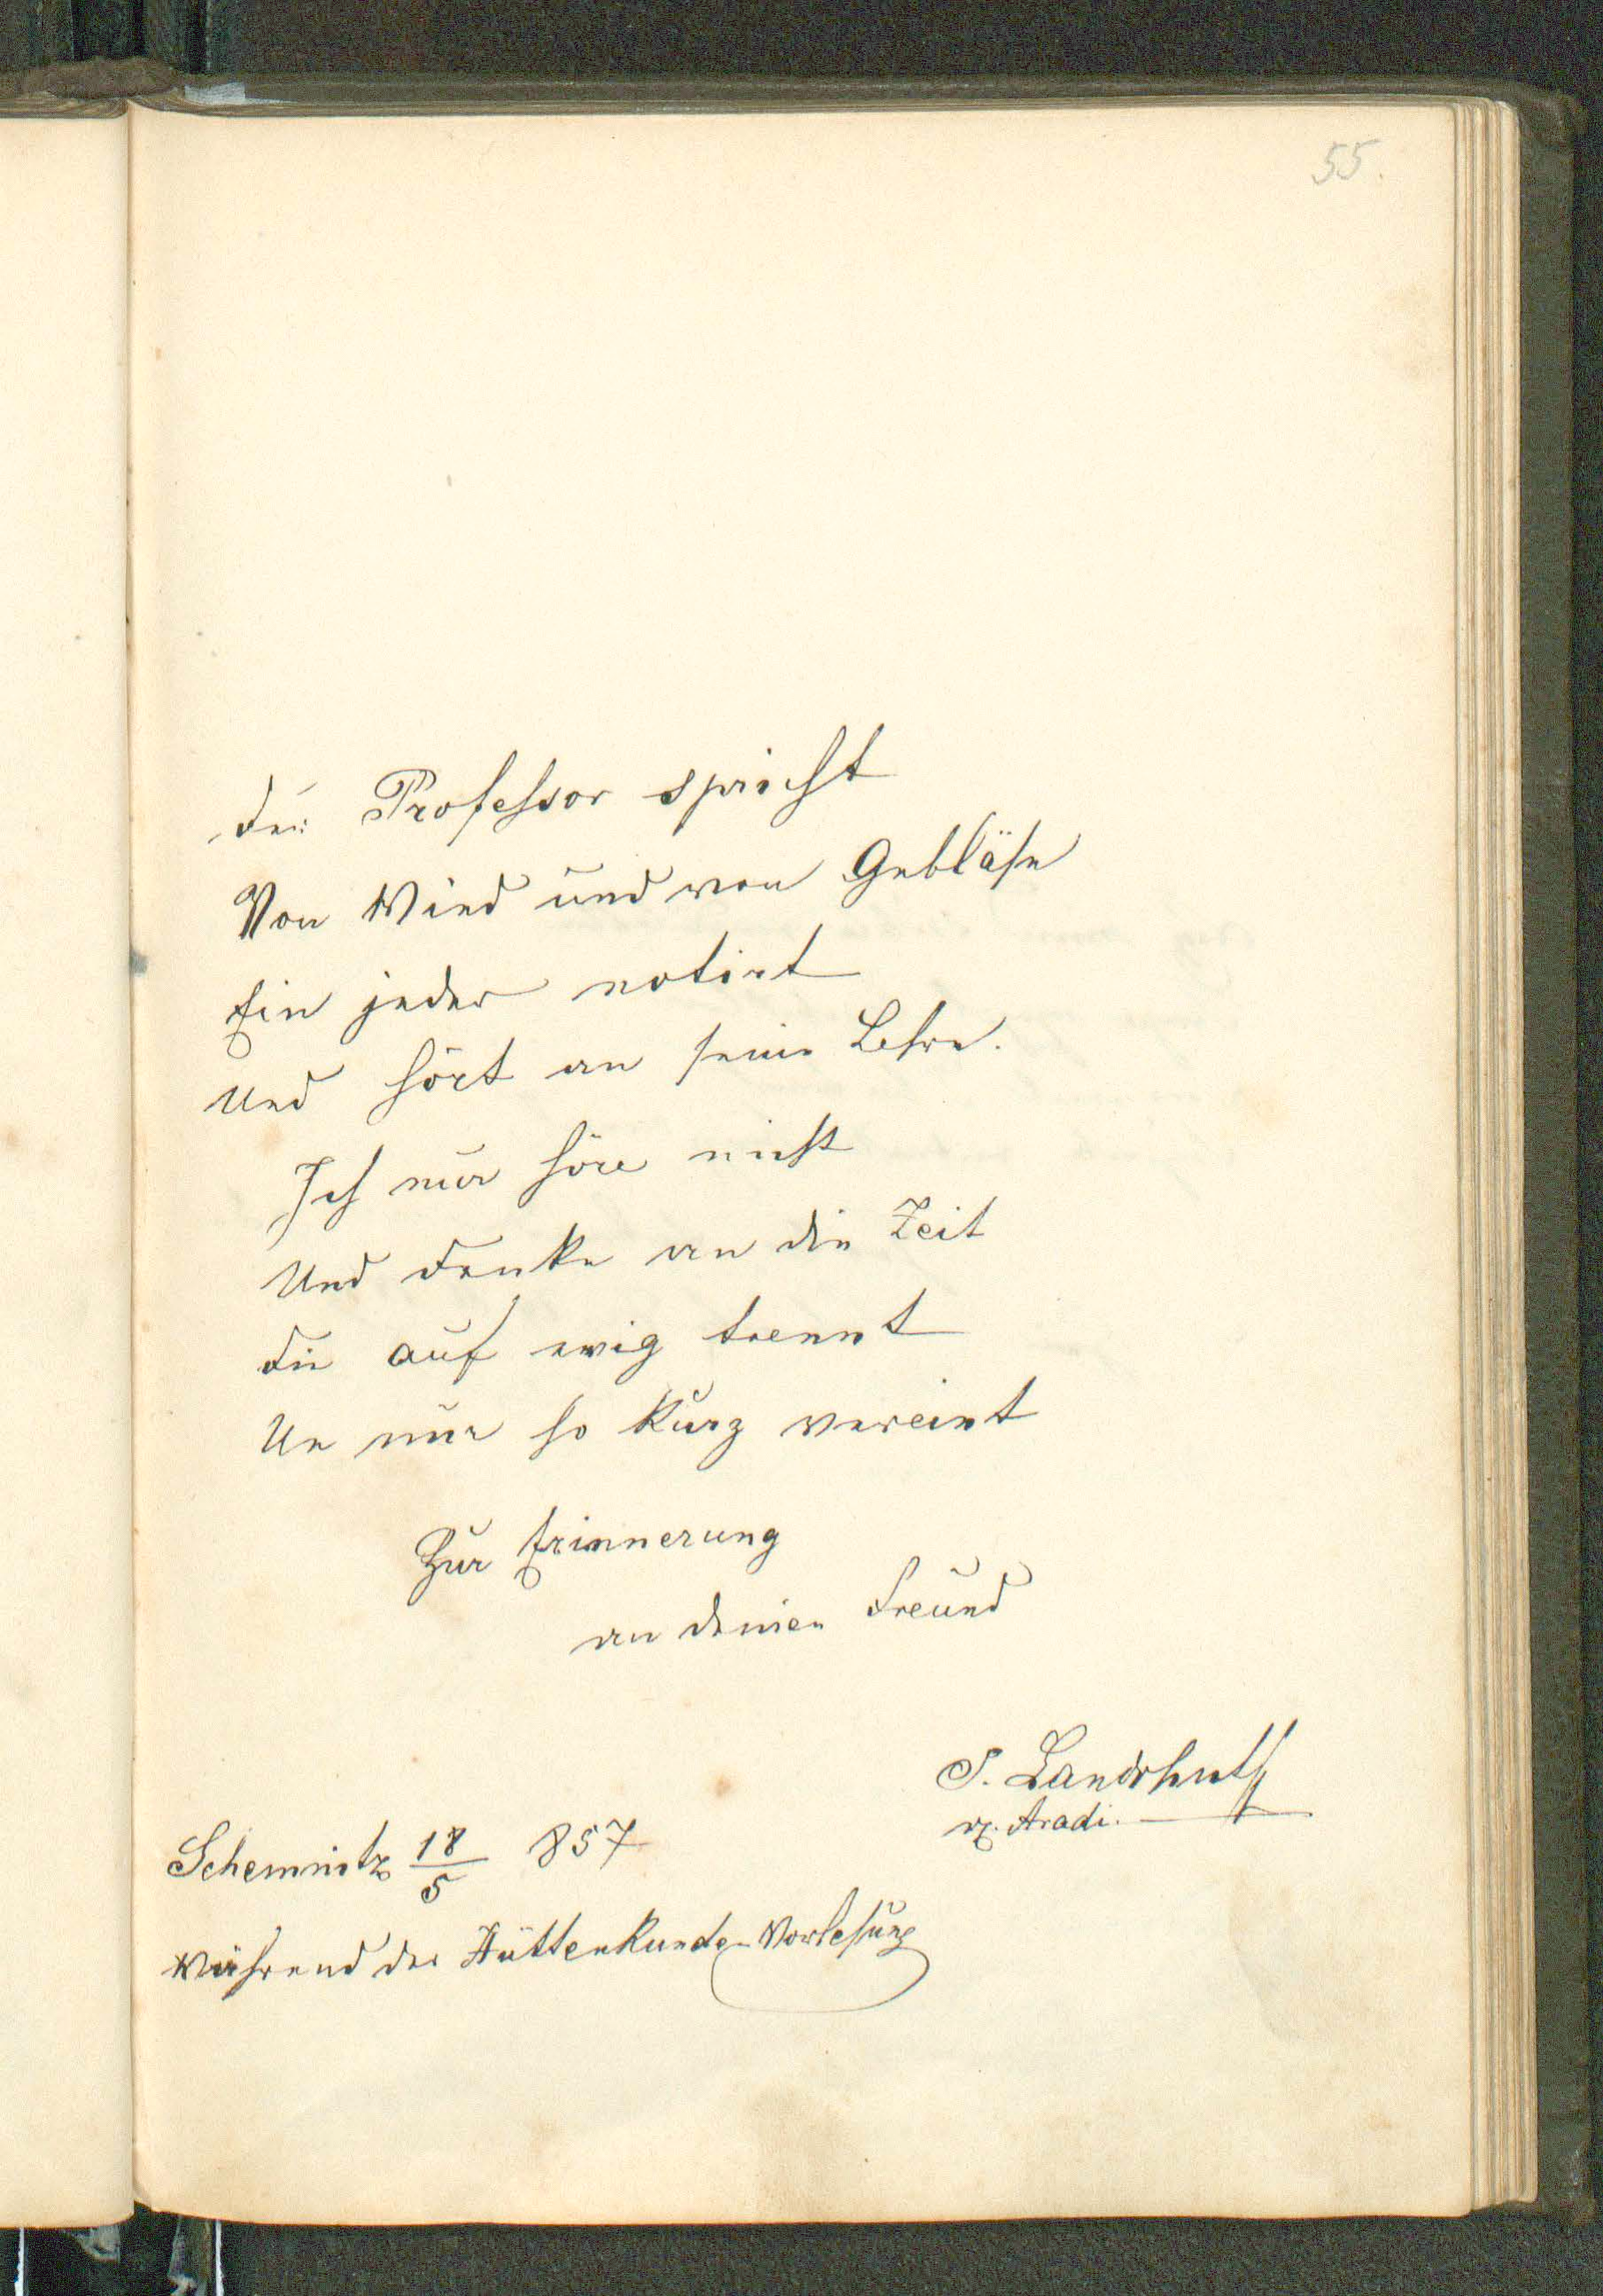 55.
Der Professor spricht
Von Wind und von Gebläse
Ein jeder notirt
Und hört an seine Lehre.
Ich nur höre nicht
Und denke an die Zeit
Die auf ewig trennt
Un nur so kurz vereint
Zur Erinnerung
an deinen Freund
S. Landshuth
v. Aradi.
Schemnitz 18/5 857
während der Hüttenkunde-Vorlesung